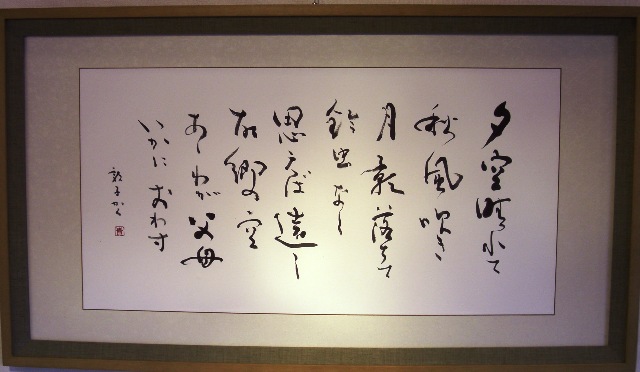 夕空晴れて
秋風吹き
月影落ちて
鈴虫なく
思えば遠し
故郷の空
あゝわが父母
いかにおわす
敦子かく